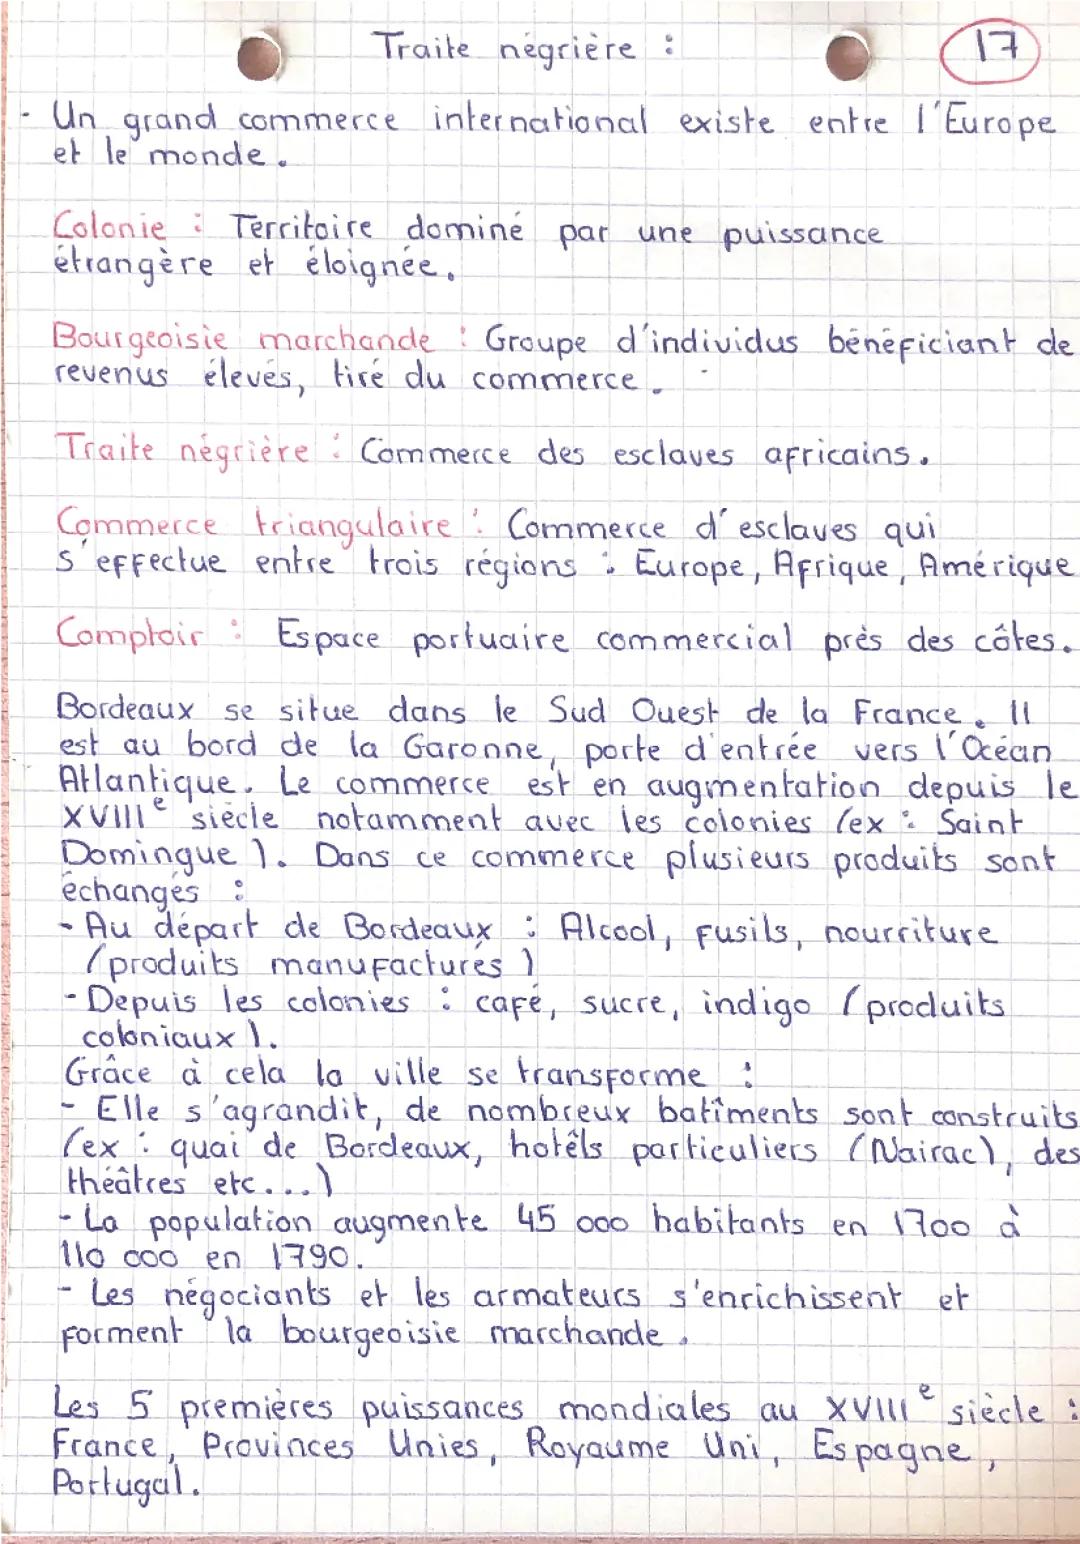 Traite négrière :
17
- Un grand commerce international existe entre l'Europe
et le monde.
Colonie : Territoire dominé par une puissance
étrangère et éloignée.
Bourgeoisie marchande : Groupe d'individus bénéficiant de
revenus élevés, tiré du commerce.
Traite négrière : Commerce des esclaves africains.
Commerce triangulaire : Commerce d'esclaves qui
s'effectue entre trois régions : Europe, Afrique, Amérique
Comptoir : Espace portuaire commercial près des côtes.
Bordeaux se situe dans le Sud Ouest de la France. Il
est au bord de la Garonne, porte d'entrée vers l'Océan
Atlantique. Le commerce est en augmentation depuis le
XVIIIe siècle notamment avec les colonies (ex : Saint
Domingue). Dans ce commerce plusieurs produits sont
échangés :
- Au départ de Bordeaux : Alcool, fusils, nourriture
(produits manufacturés)
- Depuis les colonies : café, sucre, indigo (produits
coloniaux).
Grâce à cela la ville se transforme :
- Elle s'agrandit, de nombreux batîments sont construits
(ex : quai de Bordeaux, hotêls particuliers (Nairac), des
théâtres etc...)
- La population augmente 45 000 habitants en 1700 à
110 000 en 1790.
- Les négociants et les armateurs s'enrichissent et
forment la bourgeoisie marchande.
Les 5 premières puissances mondiales au XVIIIe siècle :
France, Provinces Unies, Royaume Uni, Espagne,
Portugal.